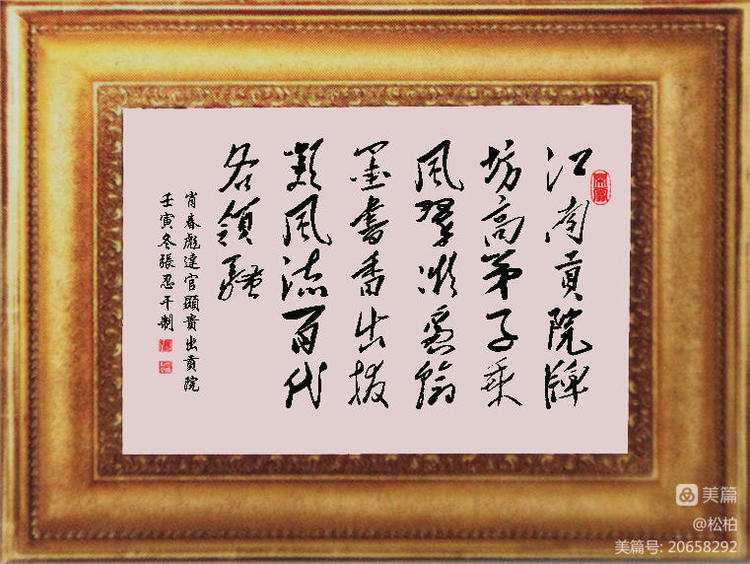 江南貢院牌
坊高第子乘
風翰
墨書香出拔
類風流百代
各領騷
肖春彪達官顯貴出貢院
壬寅冬張忍干制
美篇
@松柏
美篇号: 20658292